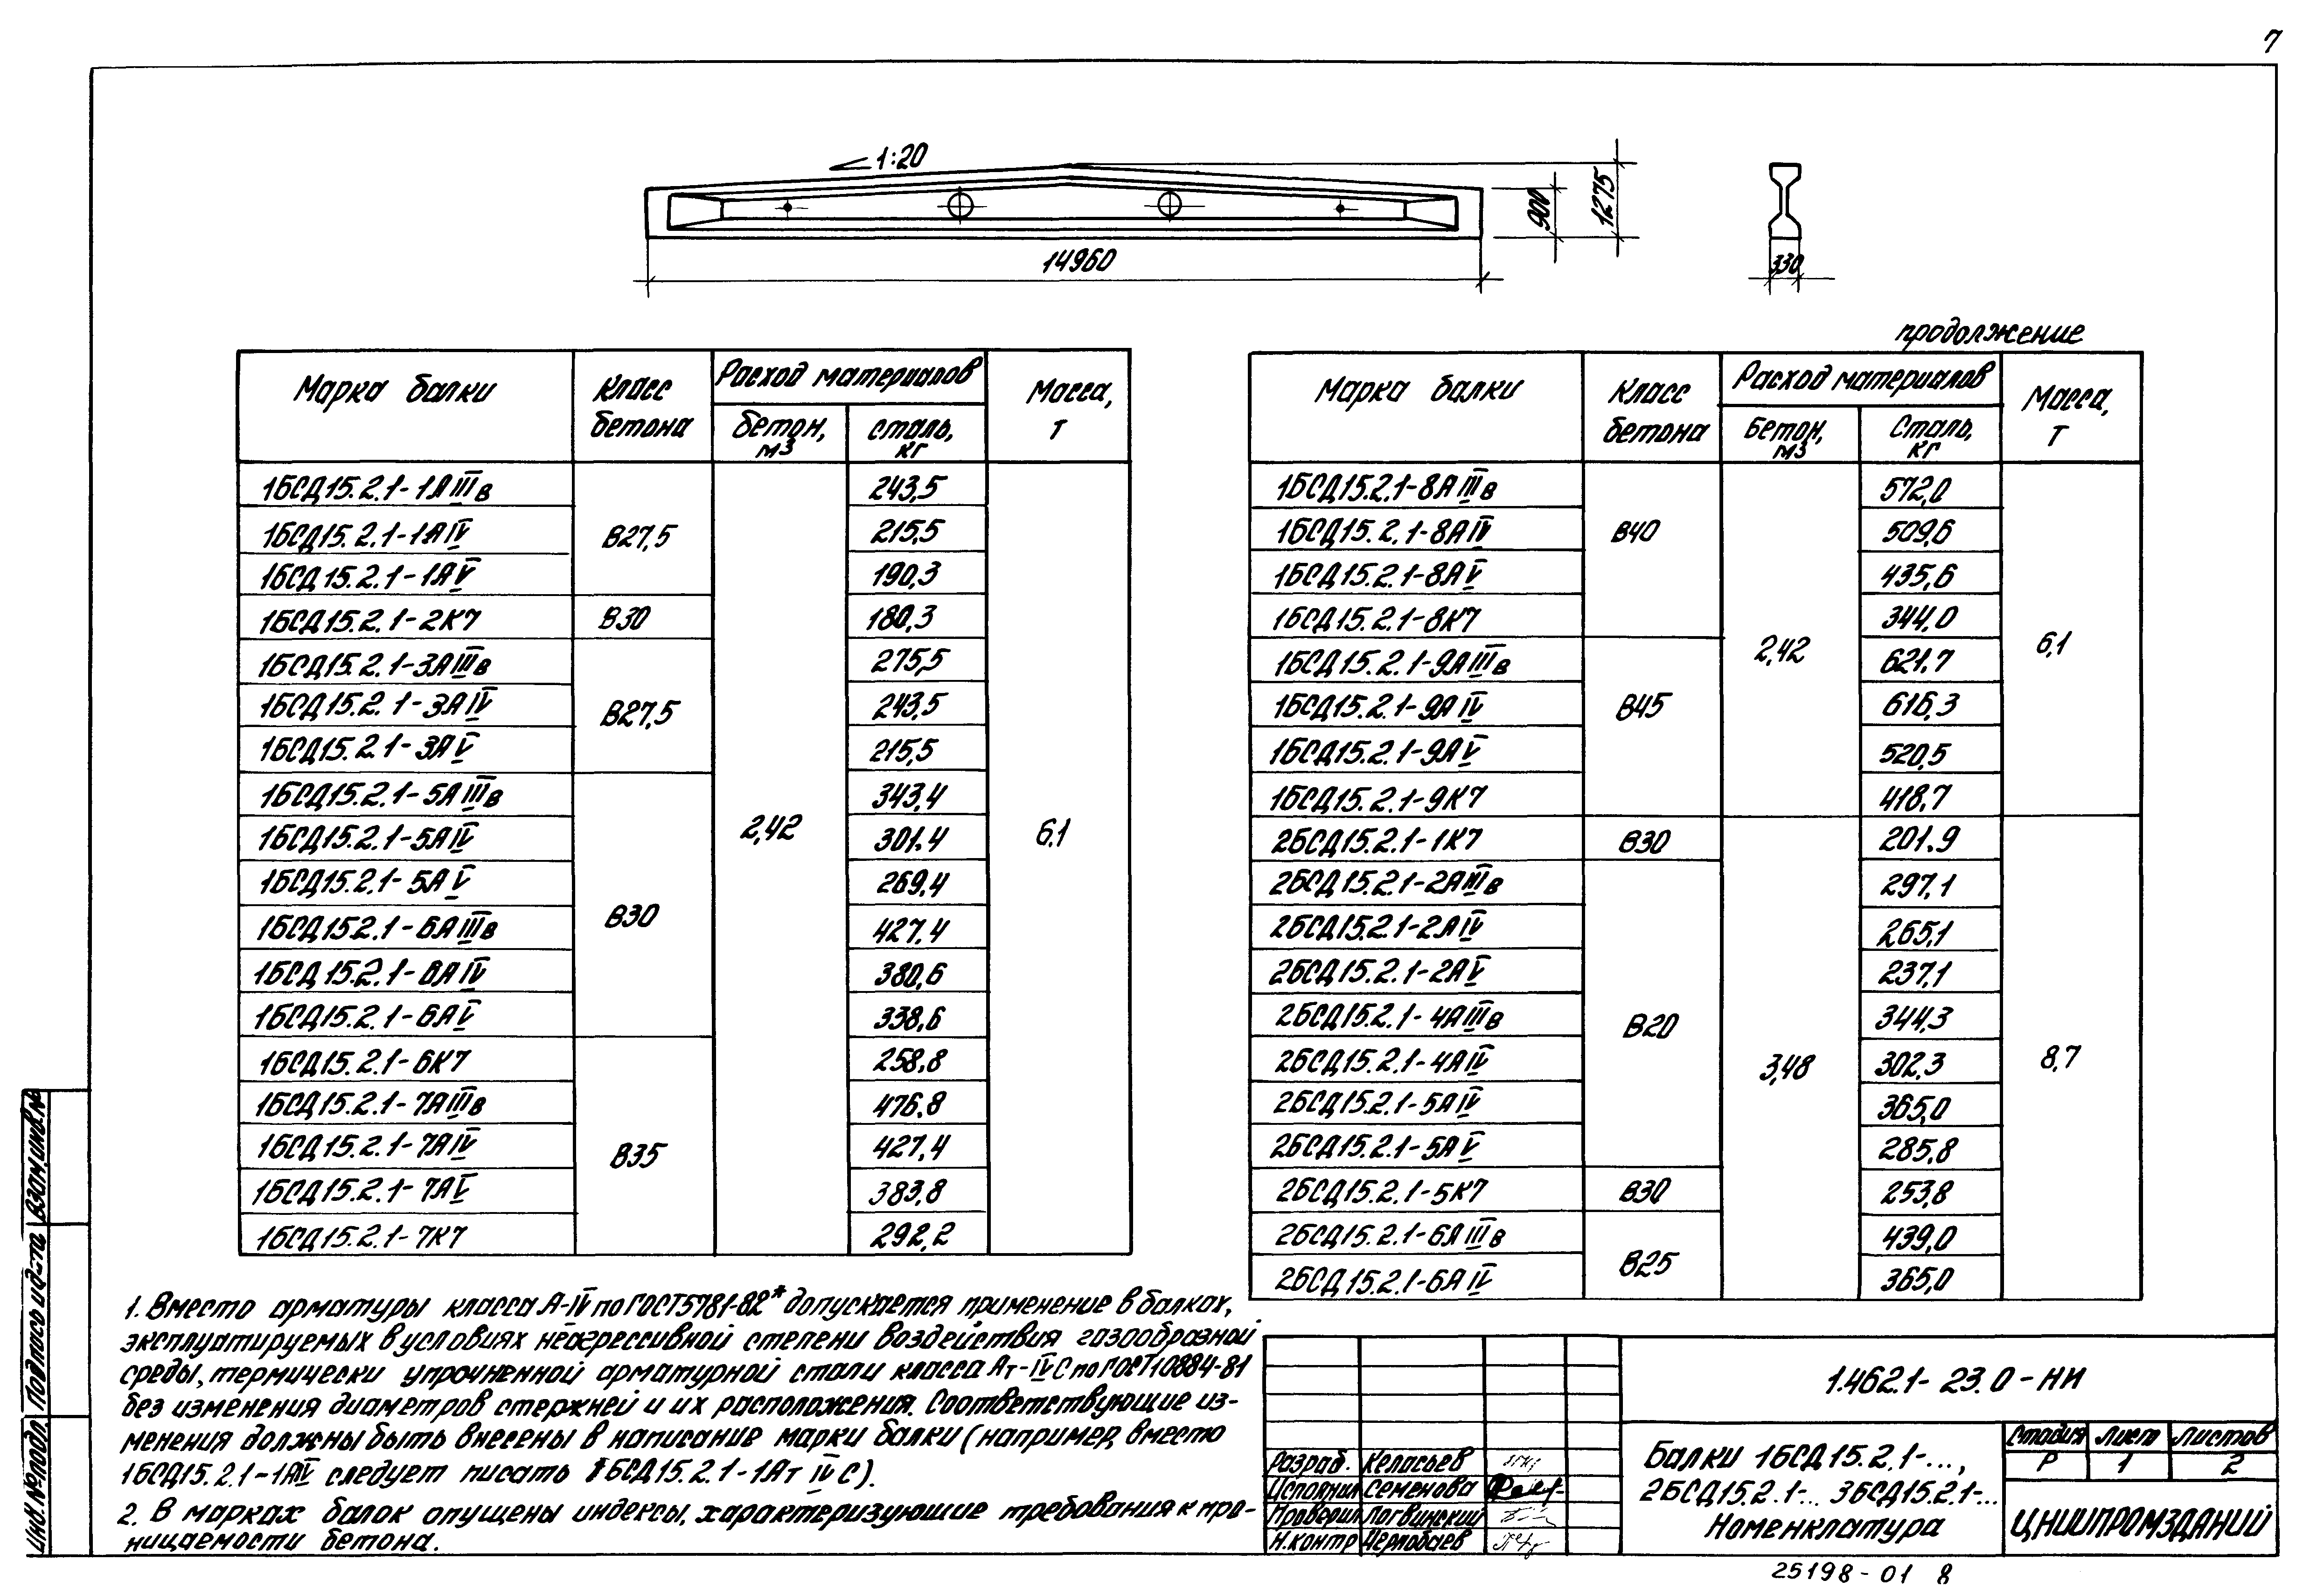 7
1:20
900
1275
14960
330
Марка балки | Класс бетона | Расход материалов | Масса, т
бетон, м3 | сталь, кг
1БСД15.2.1-1АIIIв | В27,5 | 2,42 | 243,5 | 6,1
1БСД15.2.1-1АIV | 215,5
1БСД15.2.1-1АV | 190,3
1БСД15.2.1-2К7 | В30 | 180,3
1БСД15.2.1-3АIIIв | В27,5 | 275,5
1БСД15.2.1-3АIV | 243,5
1БСД15.2.1-3АV | 215,5
1БСД15.2.1-5АIIIв | В30 | 343,4
1БСД15.2.1-5АIV | 301,4
1БСД15.2.1-5АV | 269,4
1БСД15.2.1-6АIIIв | 427,4
1БСД15.2.1-6АIV | 380,6
1БСД15.2.1-6АV | 338,6
1БСД15.2.1-6К7 | В35 | 258,8
1БСД15.2.1-7АIIIв | 476,8
1БСД15.2.1-7АIV | 427,4
1БСД15.2.1-7АV | 383,8
1БСД15.2.1-7К7 | 292,2
продолжение
Марка балки | Класс бетона | Расход материалов | Масса, т
Бетон, м3 | Сталь, кг
1БСД15.2.1-8АIIIв | В40 | 2,42 | 572,0 | 6,1
1БСД15.2.1-8АIV | 509,6
1БСД15.2.1-8АV | 435,6
1БСД15.2.1-8К7 | 344,0
1БСД15.2.1-9АIIIв | В45 | 621,7
1БСД15.2.1-9АIV | 616,3
1БСД15.2.1-9АV | 520,5
1БСД15.2.1-9К7 | 418,7
2БСД15.2.1-1К7 | В30 | 3,48 | 201,9 | 8,7
2БСД15.2.1-2АIIIв | В20 | 297,1
2БСД15.2.1-2АIV | 265,1
2БСД15.2.1-2АV | 237,1
2БСД15.2.1-4АIIIв | 344,3
2БСД15.2.1-4АIV | 302,3
2БСД15.2.1-5АIV | 365,0
2БСД15.2.1-5АV | 285,8
2БСД15.2.1-5К7 | В30 | 253,8
2БСД15.2.1-6АIIIв | В25 | 439,0
2БСД15.2.1-6АIV | 365,0
1. Вместо арматуры класса А-IV по ГОСТ5781-82* допускается применение в балках,
эксплуатируемых в условиях неагрессивной степени воздействия газообразной
среды, термически упрочненной арматурной стали класса Ат-IVС по ГОСТ10884-81
без изменения диаметров стержней и их расположения. Соответствующие из-
менения должны быть внесены в написание марки балки (например, вместо
1БСД15.2.1-1АIV следует писать 1БСД15.2.1-1Ат IV С).
2. В марках балок опущены индексы, характеризующие требования к про-
ницаемости бетона.
Инв.№подл. Подпись и д-та Взам.инв.№
1.462.1-23.0-НИ
Разраб. Келасьев
Исполнил Семенова
Проверил Логвинский
Н.контр
Балки 1БСД15.2.1-...,
2БСД15.2.1-... 3БСД15.2.1-...
Номенклатура
Стадия Лист Листов
Р 1 2
ЦНИИПРОМЗДАНИЙ
25198-01 8